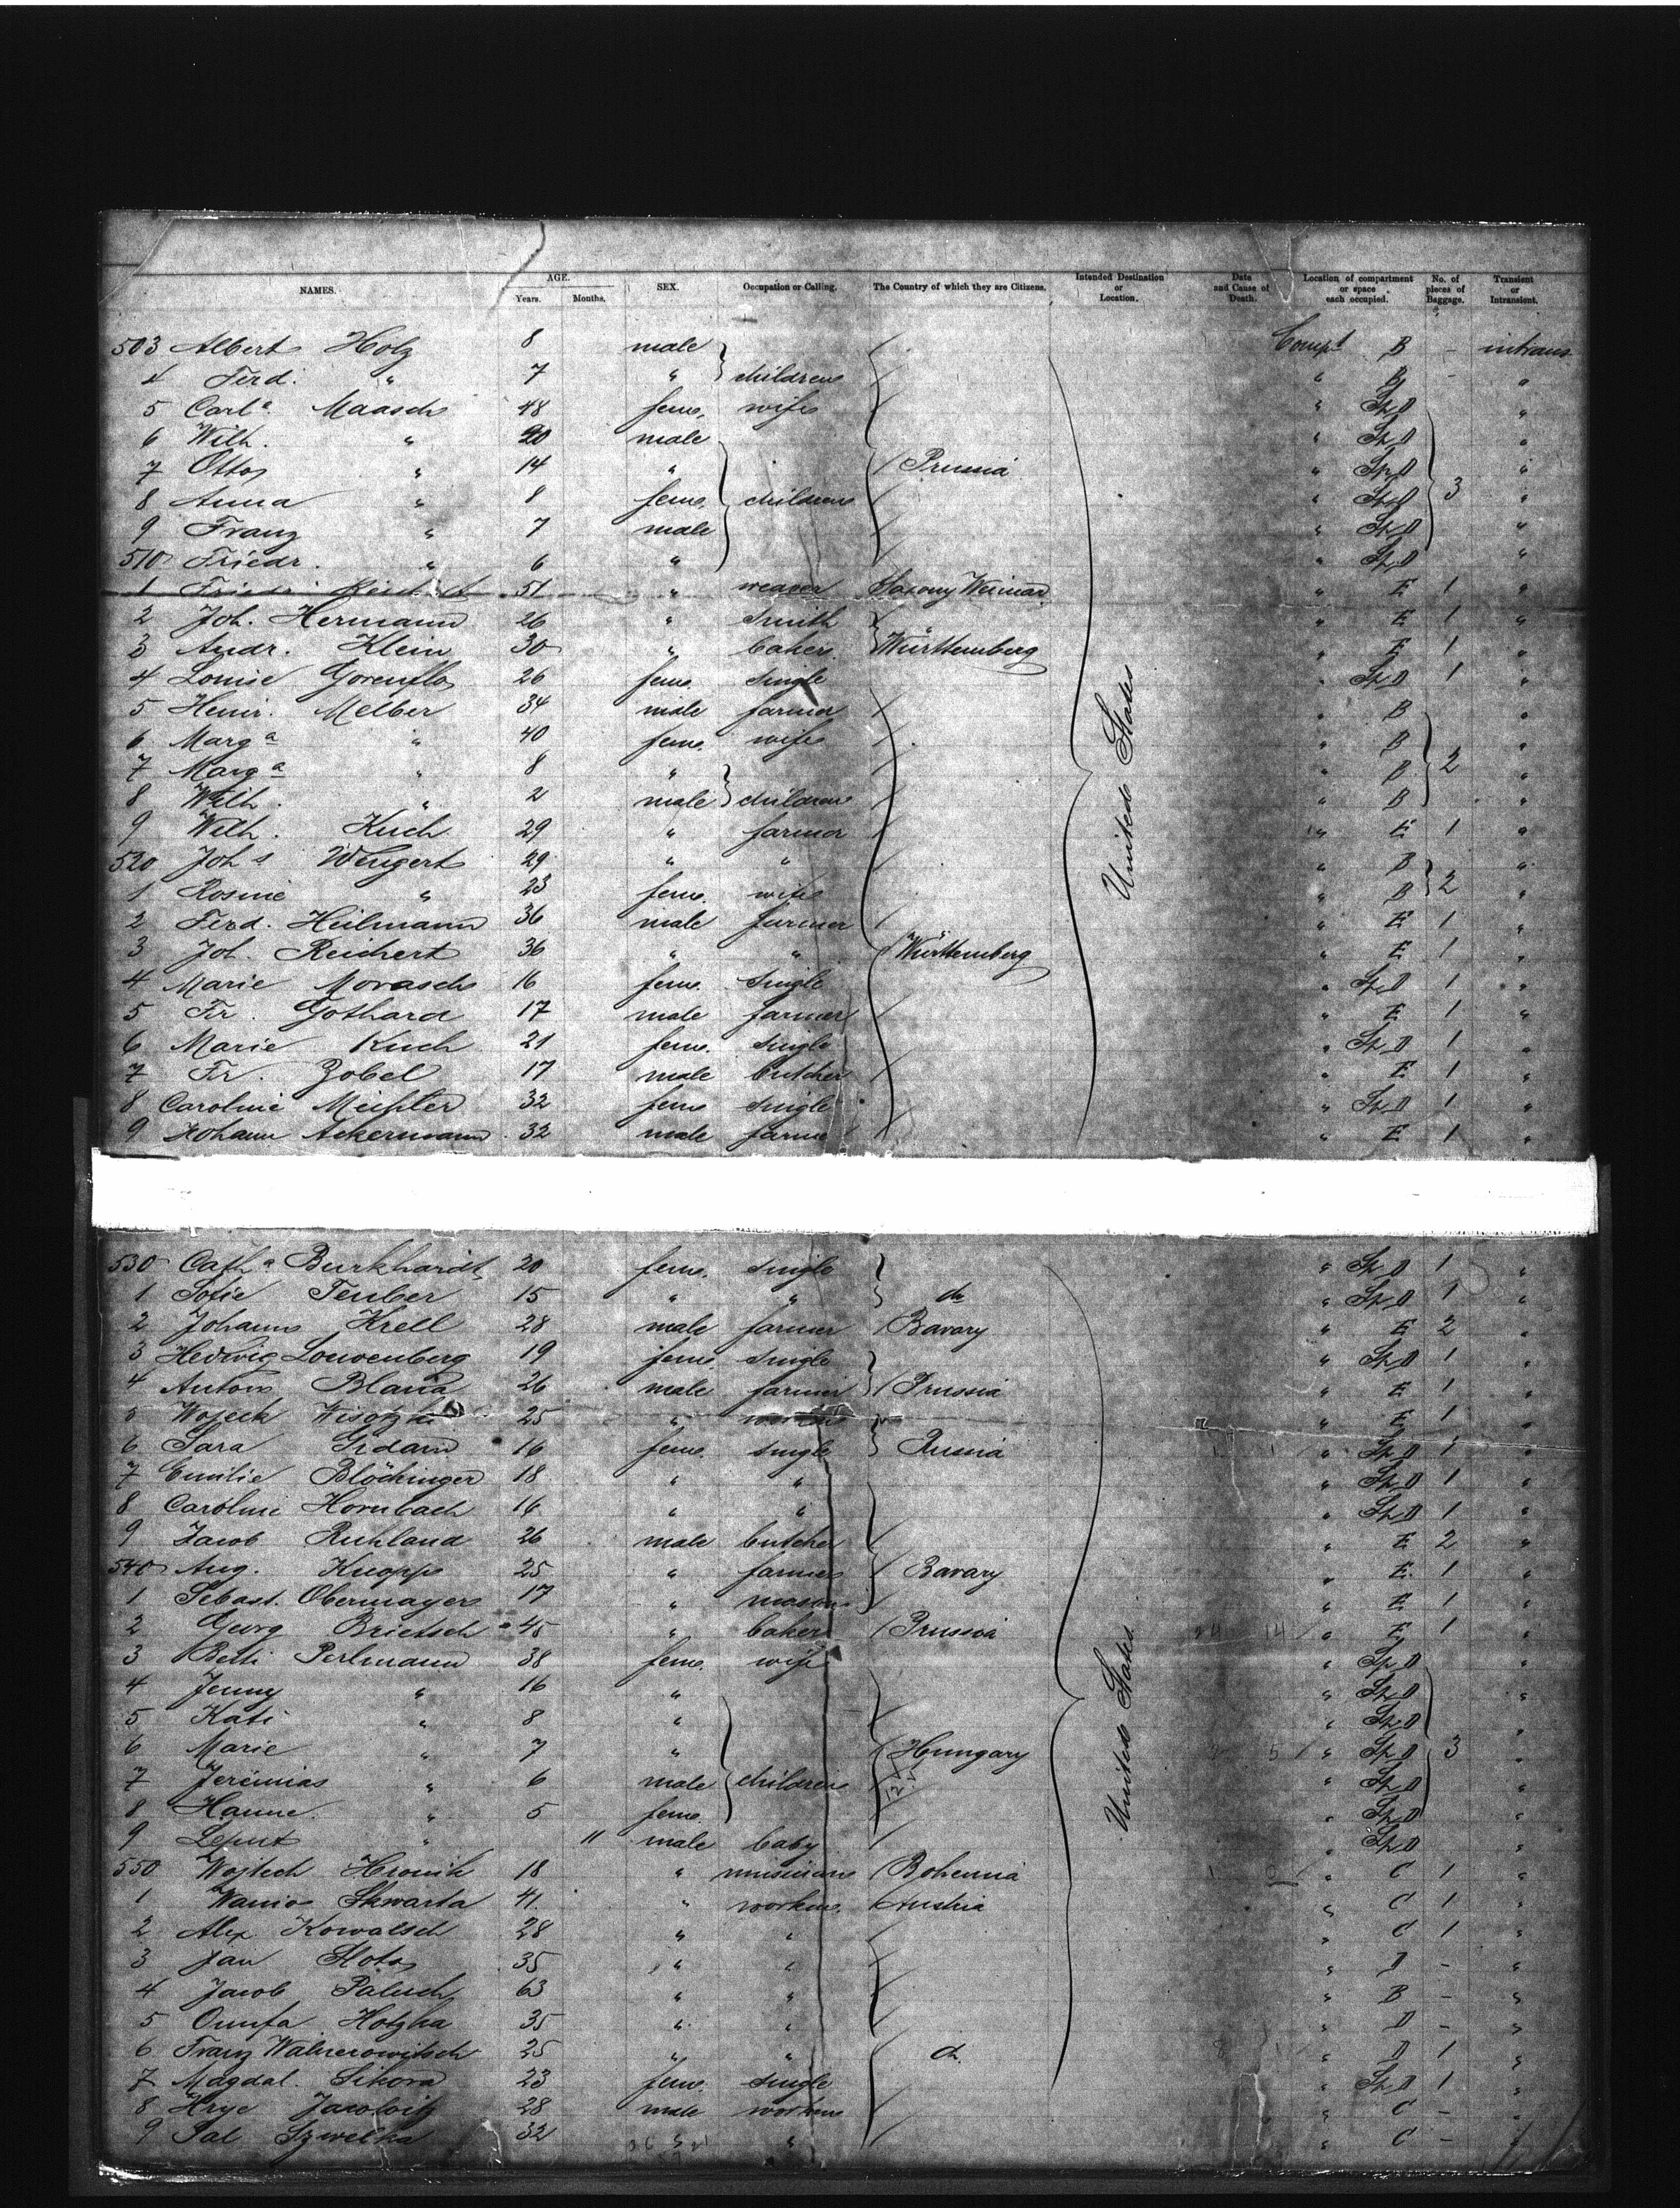 NAMES. AGE. Years. Months. SEX. Occupation or Calling. The Country of which they are Citizens. Intended Destination or Location. Date and Cause of Death. Location of compartment or space each occupied. No. of pieces of Baggage. Transient or Intransient.
503 Albert Holz 8 male Compt B - intrans
4 Ferd. " 7 " children " B - "
5 Carla. Maasch 48 fem. wife " Sp D "
6 Wilh. " 20 male " Sp D "
7 Otto " 14 " / Prussia " Sp D "
8 Anna " 8 fem. children " Sp D 3 "
9 Franz " 7 male " Sp D "
510 Friedr. " 6 " " Sp D "
1 51 " weaver Saxony Weimar " E 1 "
2 Joh. Hermann 26 " smith " E 1 "
3 Andr. Klein 30 " baker Württemberg " E 1 "
4 Louise Gorenflo 26 fem. single " Sp D 1 "
5 Heinr. Melber 34 male farmer / " B "
6 Marga " 40 fem. wife / " B "
7 Marga " 8 " / " B 2 "
8 Wilh. " 2 male children / " B "
9 Wilh. Kuch 29 " farmer / United States " E 1 "
520 Johs Wengert 29 " " / " B "
1 Rosine " 23 fem. wife " B 2 "
2 Ferd. Heilmann 36 male farmer / " E 1 "
3 Joh. Reichert 36 " " Württemberg " E 1 "
4 Marie Morasch 16 fem. single " Sp D 1 "
5 Fr. Gothard 17 male farmer / " E 1 "
6 Marie Kuch 21 fem. single " Sp D 1 "
7 Fr. Zobel 17 male butcher / " E 1 "
8 Caroline 32 fem single " Sp D 1 "
9 Johann Ackermann 32 male farmer / " E 1 "
530 Catha Burkhardt 20 fem. single " Sp D 1 "
1 Sofie Teuber 15 " " do " Sp D 1 "
2 Johann Krell 28 male farmer / Bavary " E 2 "
3 Hedwig Louwenberg 19 fem. single " Sp D 1 "
4 Anton Blana 26 male farmer / Prussia " E 1 "
5 Wojeck 25 " " E 1 "
6 Sara 16 fem. single Russia " Sp D 1 "
7 Emilie Blöchinger 18 " " " Sp D 1 "
8 Caroline Hornbach 16 " " " Sp D 1 "
9 Jacob Ruhland 26 male butcher / " E 2 "
540 Aug. Knopp 25 " farmer / Bavary " E 1 "
1 Sebast. Obermayer 17 " mason / " E 1 "
2 Georg Brietsch 45 " baker / Prussia " E 1 "
3 Betti Perlmann 38 fem. wife United States " Sp D "
4 Jenny " 16 " " Sp D "
5 Kati " 8 " / " Sp D "
6 Marie " 7 " / Hungary " Sp D 3 "
7 Jeremias " 6 male children / " Sp D "
8 Hanne " 5 fem. " Sp D "
9 " 11 male baby / " Sp D "
550 Wojtech Hronik 18 " musician / Bohemia " C 1 "
1 Wanio Skwarta 41 " workm. / Austria " C 1 "
2 Alex Kowalsch 28 " " " C 1 "
3 Jan 35 " " / " D - "
4 Jacob Palusch 63 " " / " B - "
5 Hotzka 35 " " / " D - "
6 Franz Walnerowitsch 25 " " do. " D 1 "
7 Magdal. Sikora 23 fem. single / " Sp D 1 "
8 28 male workm / " C - "
9 Pal 32 " " / " C - "